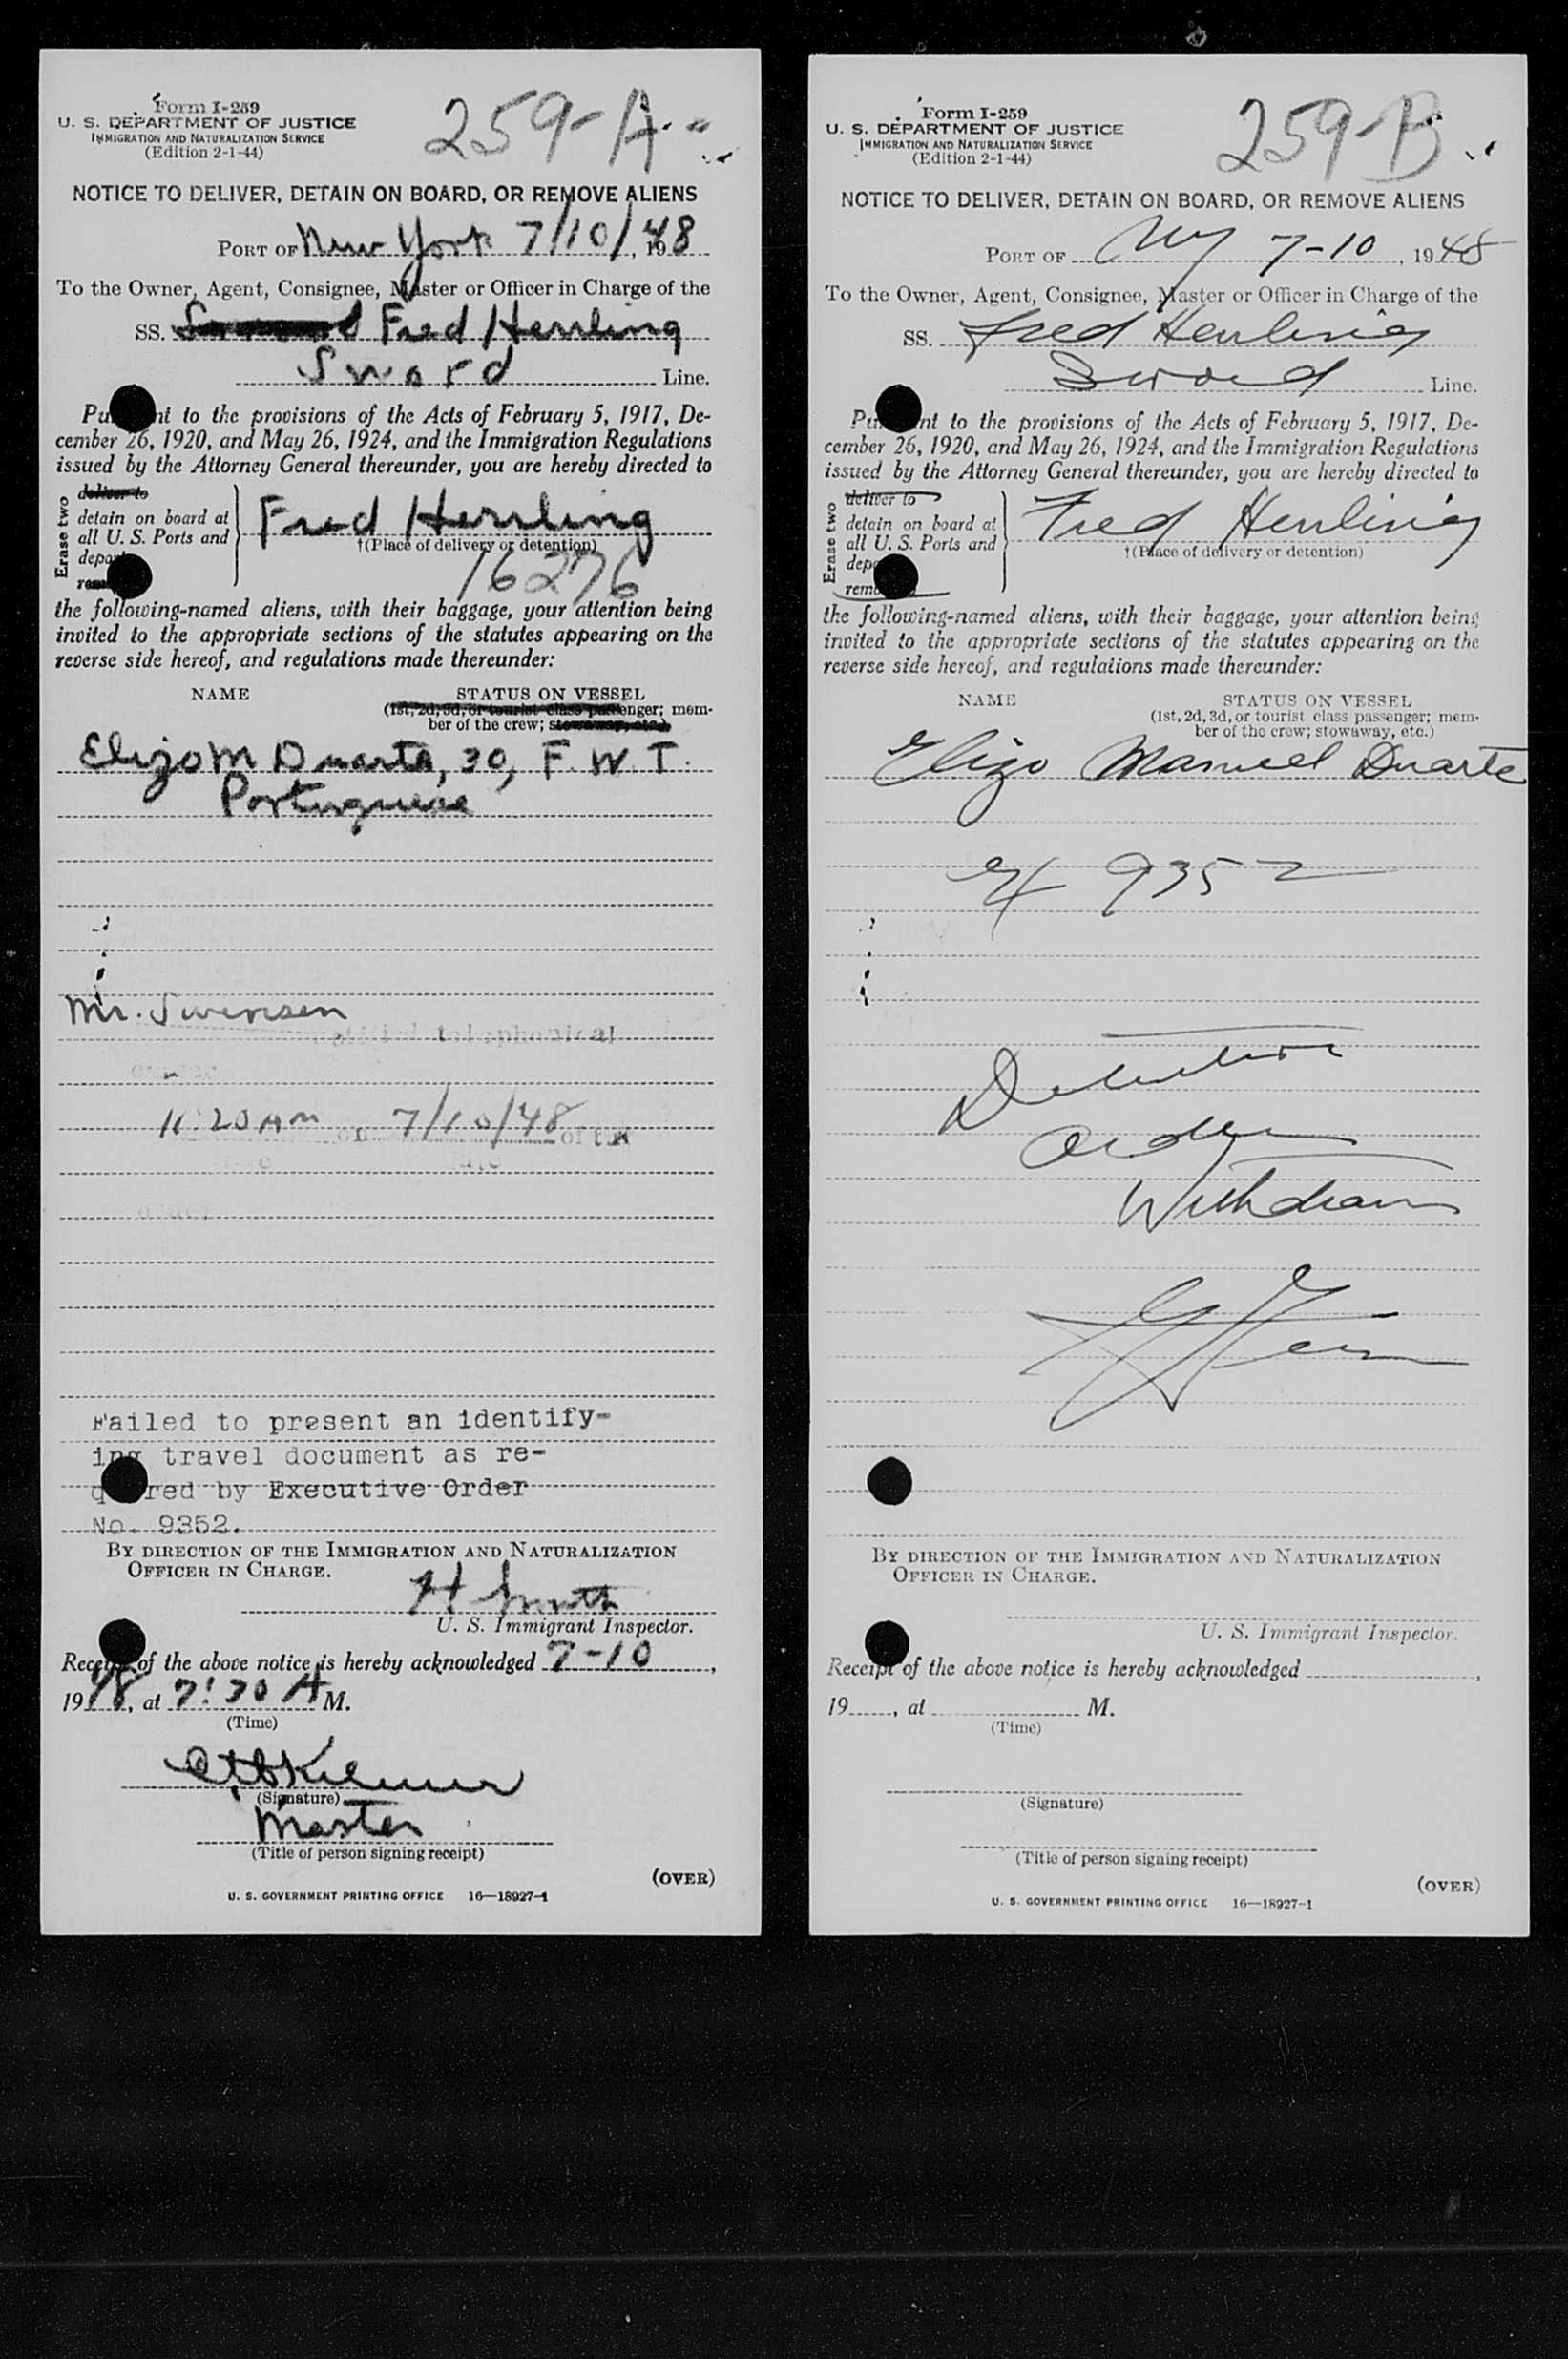 Form I-259
U. S. DEPARTMENT OF JUSTICE
IMMIGRATION AND NATURALIZATION SERVICE
(Edition 2-1-44)
259-A
NOTICE TO DELIVER, DETAIN ON BOARD, OR REMOVE ALIENS
PORT OF New York 7/10/, 1948
To the Owner, Agent, Consignee, Master or Officer in Charge of the
SS. Fred Herrling
Sword Line.
Pu nt to the provisions of the Acts of February 5, 1917, De-
cember 26, 1920, and May 26, 1924, and the Immigration Regulations
issued by the Attorney General thereunder, you are hereby directed to
Erase two
deliver to
detain on board at
all U. S. Ports and
depo
rem
Fred Herrling
†(Place of delivery or detention)
16276
the following-named aliens, with their baggage, your attention being
invited to the appropriate sections of the statutes appearing on the
reverse side hereof, and regulations made thereunder:
NAME STATUS ON VESSEL
(1st, 2d, 3d, or tourist class passenger; mem-
ber of the crew; stowaway, etc.)
Elizo M Duarte, 30, F. W. T.
Portuguese
Mr. Swensen
notified telephonical
11:20 AM on 7/10/48 of the
order
Failed to present an identify-
ing travel document as re-
q red by Executive Order
No. 9352.
BY DIRECTION OF THE IMMIGRATION AND NATURALIZATION
OFFICER IN CHARGE.
H. Smith
U. S. Immigrant Inspector.
Receipt of the above notice is hereby acknowledged 7-10,
1948, at 7:30 A M.
(Time)
(Signature)
Master
(Title of person signing receipt)
(OVER)
U. S. GOVERNMENT PRINTING OFFICE 16—18927-1
Form I-259
U. S. DEPARTMENT OF JUSTICE
IMMIGRATION AND NATURALIZATION SERVICE
(Edition 2-1-44)
259-B
NOTICE TO DELIVER, DETAIN ON BOARD, OR REMOVE ALIENS
PORT OF NY 7-10, 1948
To the Owner, Agent, Consignee, Master or Officer in Charge of the
SS. Fred Herrling
Sword Line.
Pu nt to the provisions of the Acts of February 5, 1917, De-
cember 26, 1920, and May 26, 1924, and the Immigration Regulations
issued by the Attorney General thereunder, you are hereby directed to
Erase two
deliver to
detain on board at
all U. S. Ports and
depo
remo
Fred Herrling
†(Place of delivery or detention)
the following-named aliens, with their baggage, your attention being
invited to the appropriate sections of the statutes appearing on the
reverse side hereof, and regulations made thereunder:
NAME STATUS ON VESSEL
(1st, 2d, 3d, or tourist class passenger; mem-
ber of the crew; stowaway, etc.)
Elizo Manuel Duarte
9352
Detention
Order
Withdrawn
BY DIRECTION OF THE IMMIGRATION AND NATURALIZATION
OFFICER IN CHARGE.
U. S. Immigrant Inspector.
Receipt of the above notice is hereby acknowledged ,
19 , at M.
(Time)
(Signature)
(Title of person signing receipt)
(OVER)
U. S. GOVERNMENT PRINTING OFFICE 16—18927-1